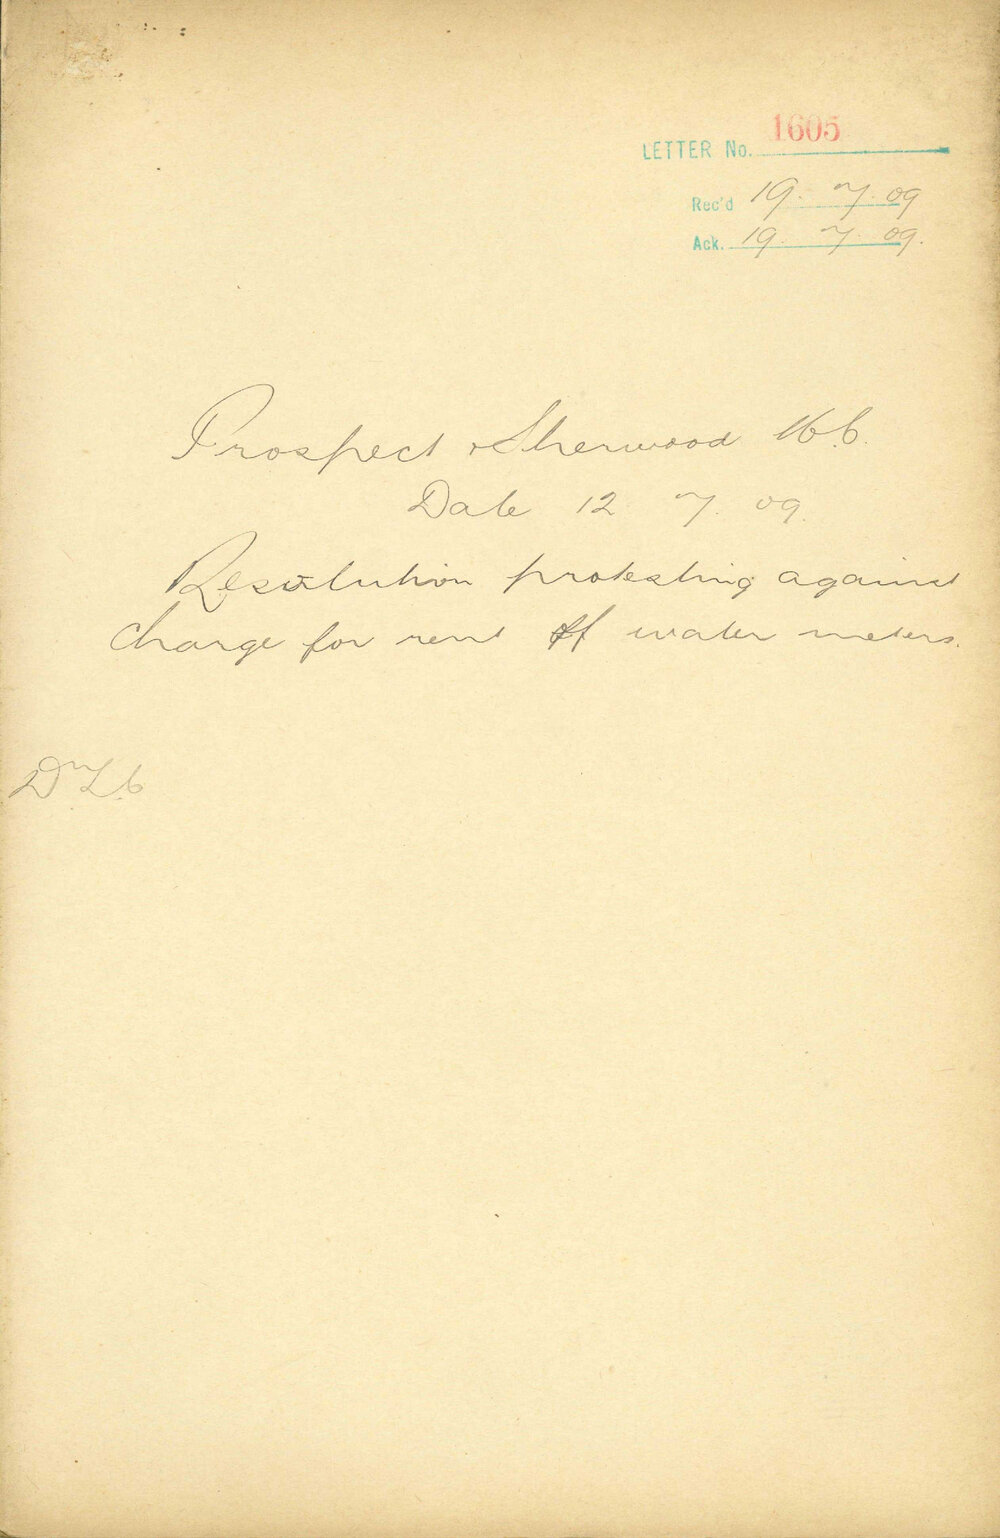 LETTER No. 1605
Rec'd 19. 7. 09
Ack. 19. 7. 09.
Prospect & Sherwood
Date 12 7. 09.
Resolution protesting against
charge for rent of water meters.